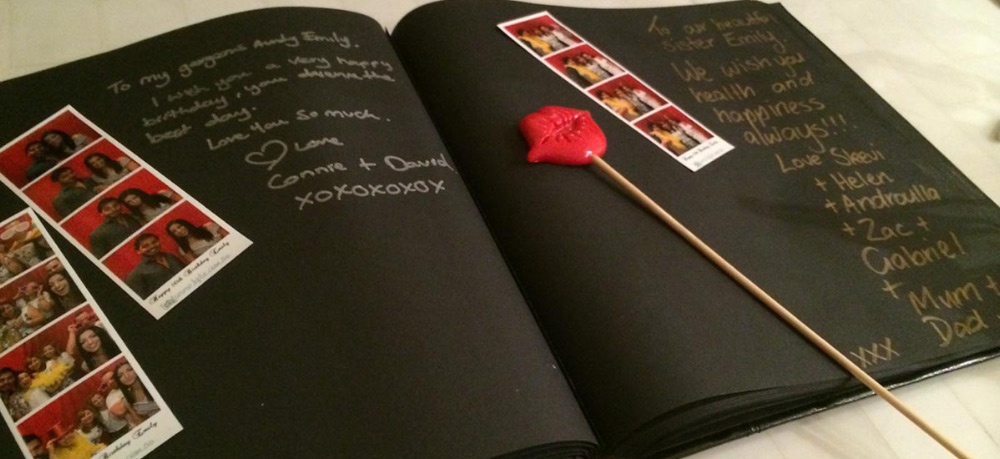 To my gorgeous Aunty Emily.
I wish you a very happy
birthday, you deserve the
best day.
Love you so much.
Love
Connie + David
xoxoxoxox
Happy Birthday Emily
Birthday Emily
To our beautiful
sister Emily
We wish you
health and
happiness
always!!!
Love Sheevi
+ Helen
+ Androulla
+ Zac +
Gabriel
+ Mum +
Dad.
xxx